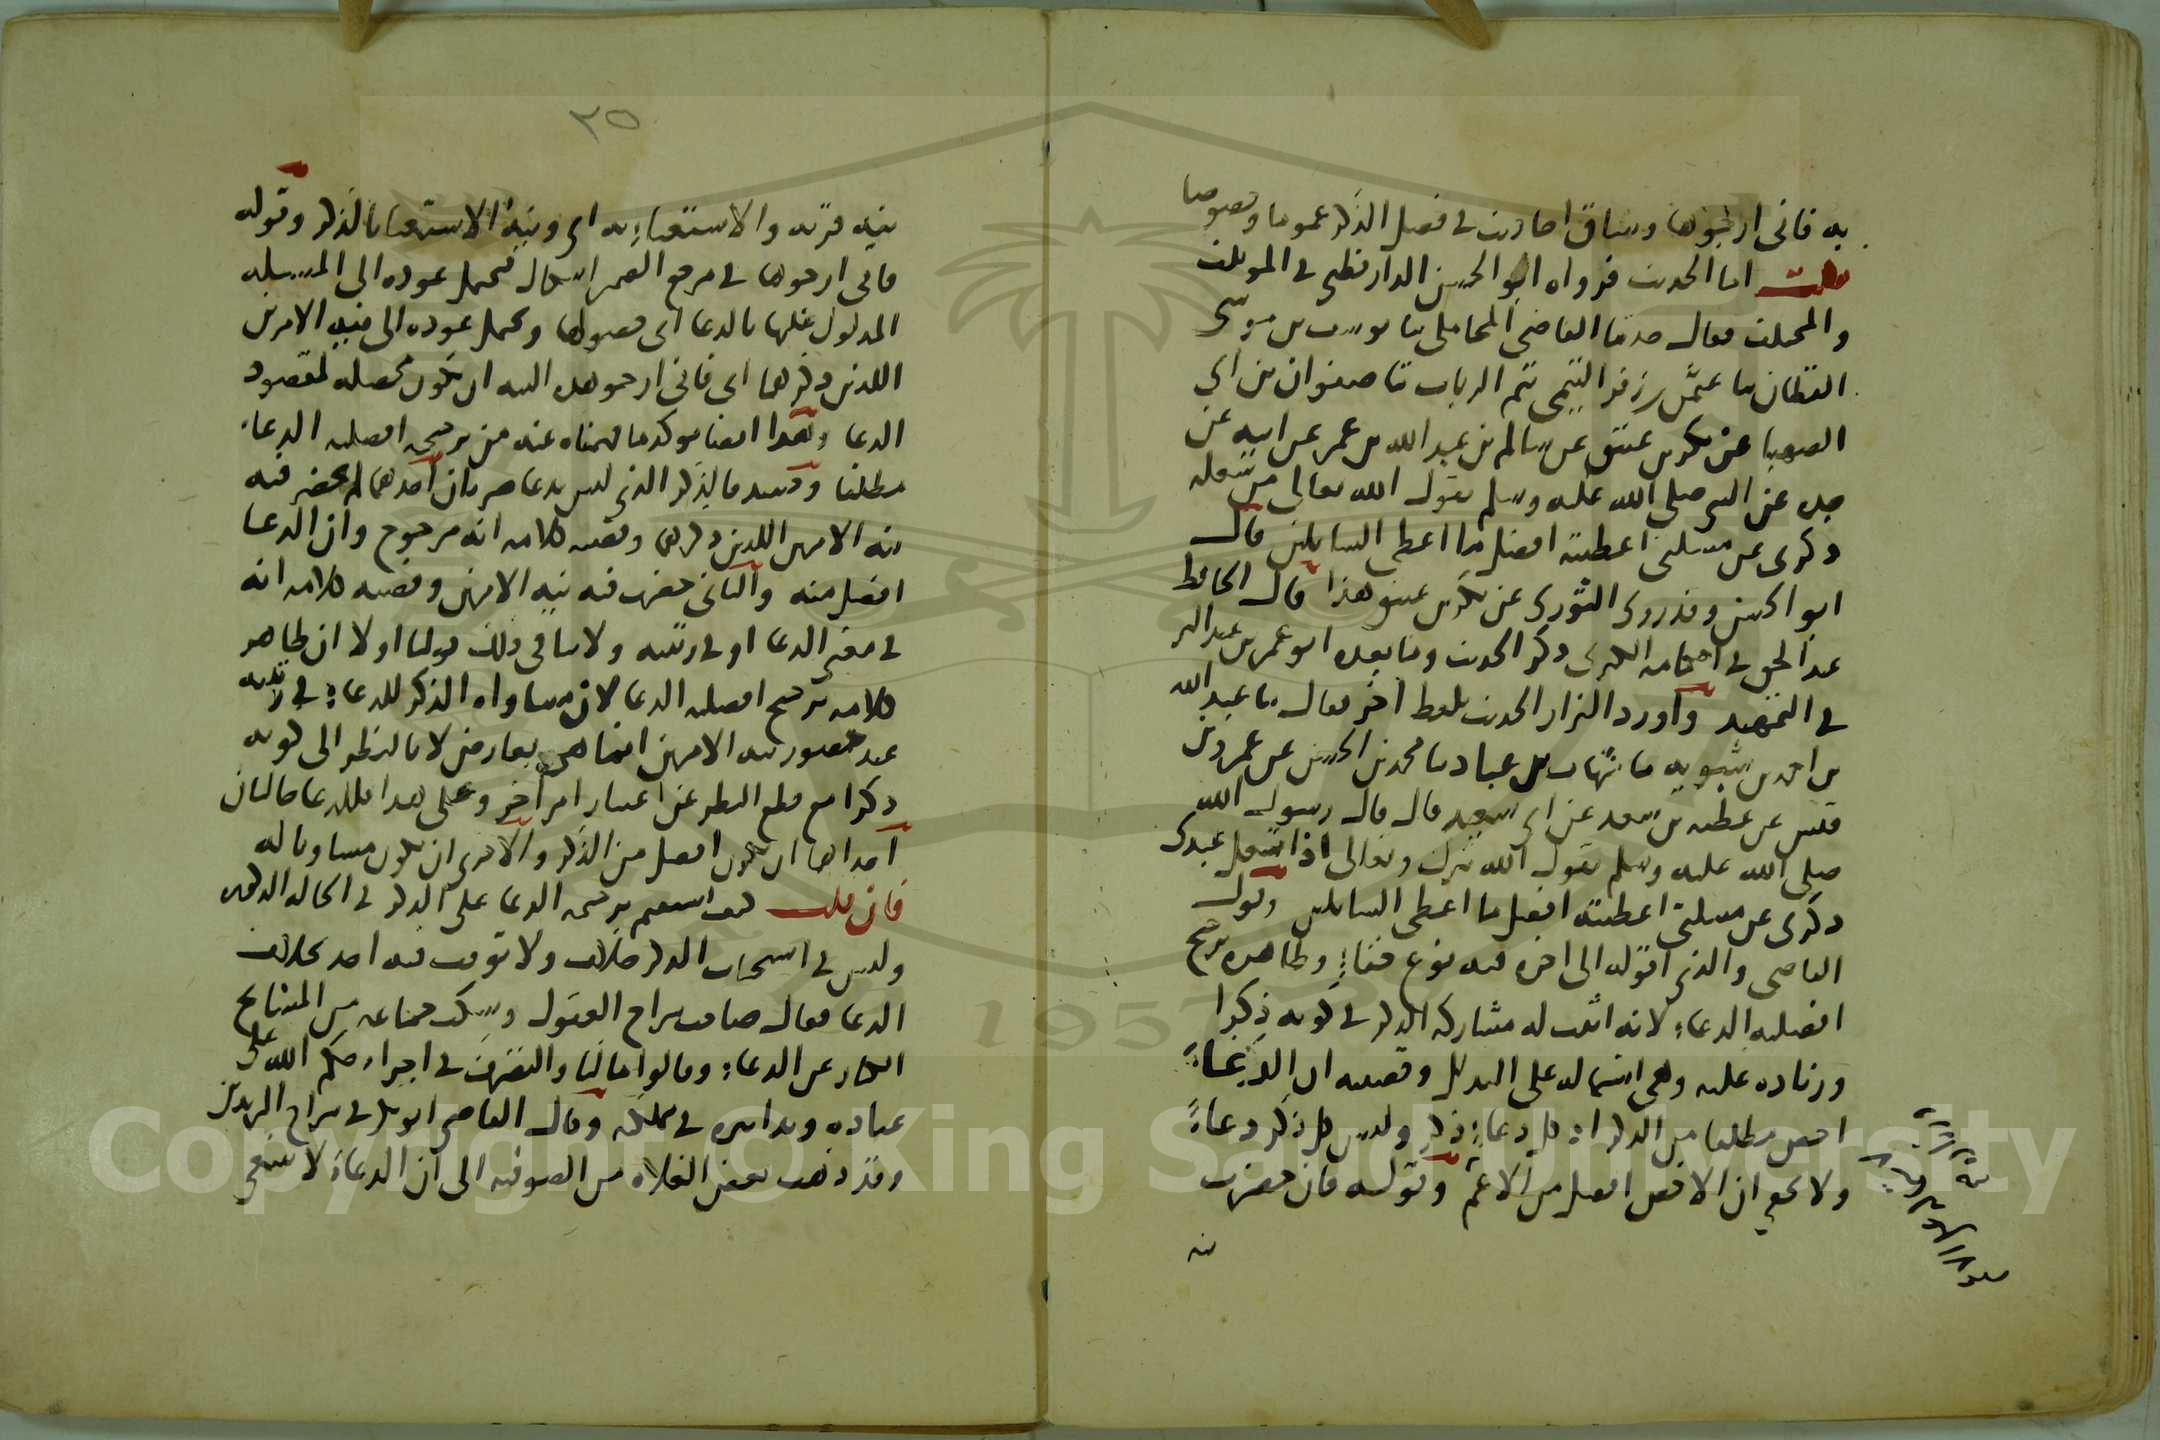 به فاني ارجوها وساق احاديث في فضل الذكر عموما وخصوصا
قلت اما الحديث فرواه ابو الحسن الدارقطني في الموتلف
والمختلف فقال حدثنا القاضي المحاملي ثنا يوسف بن موسى
القطان ثنا عثمن بن زفر التيمي تيم الرباب ثنا صفوان بن ابي
الصهبا عن بكير بن عتيق عن سالم بن عبد الله بن عمر عن ابيه عن
جده عن النبي صلى الله عليه وسلم يقول الله تعالى من شغله
ذكري عن مسلتي اعطيته افضل ما اعطي السايلين قال
ابو الحسن وقد روى الثوري عن بكير بن عتيق هذا قال الحافظ
عبد الحق في احكامه الكبرى ذكر الحديث وما بعده ابو عمر بن عبد البر
في التمهيد وأورد البزار الحديث بلفظ اخر فقال ثنا عبد الله
بن احمد بن شبويه ثنا شهاب بن عباد ثنا محمد بن الحسن عن عمرو بن
قيس عن عطيه بن سعد عن ابي سعيد قال قال رسول الله
صلى الله عليه وسلم يقول الله تبرك وتعالى اذا شغل عبدي
ذكري عن مسلتي اعطيته افضل ما اعطي السايلين وقول
القاضي والذي اقوله الى اخره فيه نوع خفاء وظاهره ترجيح
افضليه الدعاء لانه اثبت له مشاركه الذكر في كونه ذكرا
وزياده عليه وهي اشتماله على التذلل وقضيته ان الدعاء
اخص مطلقا من الذكر اذ كل دعاء ذكر وليس كل ذكر دعاء
ولا يخفي ان الاخص افضل من الاعم وقوله فان حضرت
نيه
٢٥
نيته قربه والاستغناء به اي ونيه الاستغنا بالذكر وقوله
فاني ارجوها في مرجع الضمير اشكال فيحتمل عوده الى المسله
المدلول عليها بالدعا اي حصولها ويحتمل عوده الى نيه الامرين
اللذين ذكرهما اي فاني ارجو هذه النيه ان تكون محصله لمقصود
الدعا وهذا ايضا موكد ما فهمناه عنه من ترجيح افضليه الدعا
مطلقا وتقييده بالذكر الذي ليس بدعا ضربان احدهما لم يحضر فيه
نيه الامرين اللذين ذكرهما وقضيه كلامه انه مرجوح وان الدعا
افضل منه والثاني حضرت فيه نيه الامرين وقضيه كلامه انه
في معنى الدعا او في رتبته ولا ينافي ذلك قولنا اولا ان ظاهر
كلامه ترجيح افضليه الدعا لان مساواه الذكر للدعاء في رتبته
عند حضور نيه الامرين انما هي بعارض لا بالنظر الى كونه
ذكرا مع قطع النظر عن اعتبار امر اخر وعلى هذا فللدعا حالتان
احداهما ان يكون افضل من الذكر والاخرى ان يكون مساويا له
فان قلت كيف يستقيم ترجيح الدعا على الذكر في الحاله المذكوره
وليس في استحباب الذكر خلاف ولا توقف فيه احد بخلاف
الدعا فقال صاحب سراج العقول وسكت جماعه من المشايخ
الكبار عن الدعاء وقالوا ما لنا والتصرف في اجراء حكم الله على
عباده وتدابيره في مملكته وقال القاضي ابو بكر في سراج المريدين
وقد ذهب بعض الغلاه من الصوفيه الى ان الدعاء لا ينبغي
Copyright © King Saud University
1957